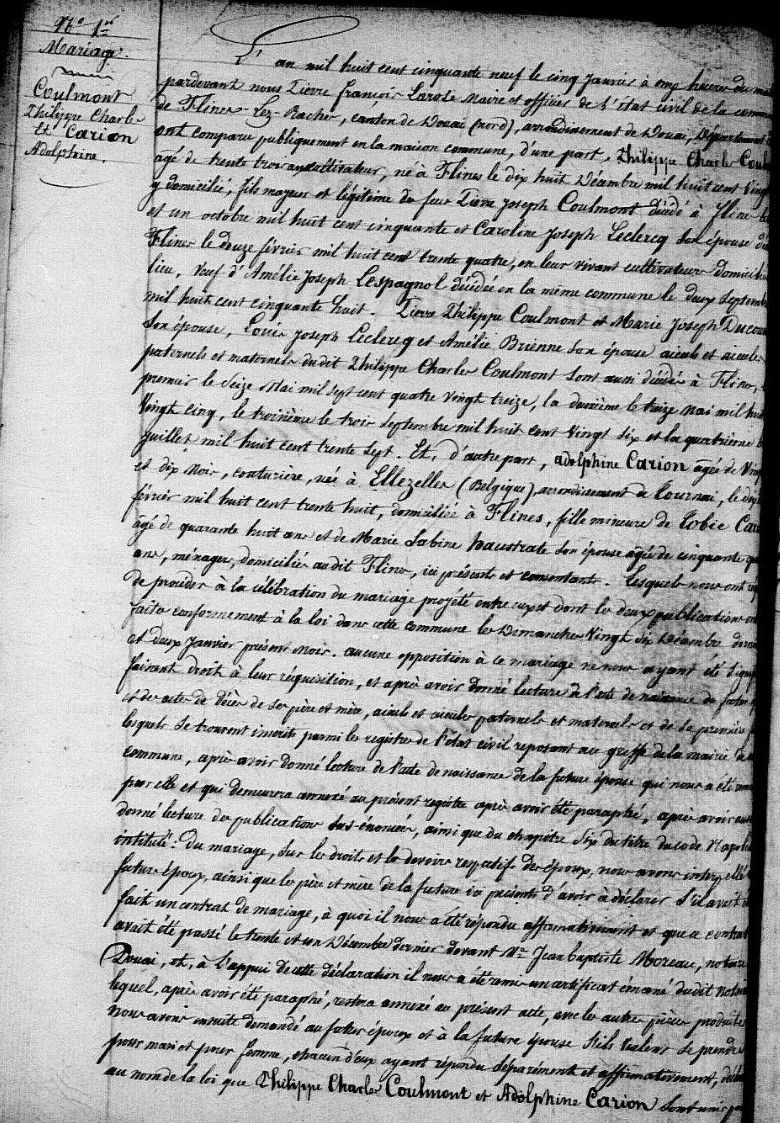 N.° 1er
Mariage.
Coulmont
Philippe Charles
Et Carion
Adolphine.
L'an mil huit cent cinquante neuf le cinq Janvier à onze heures du
pardevant nous Pierre françois Larose Maire et officier de l'état civil de la
de Flines-Lez-Raches, canton de Douai (nord), arrondissement de Douai, Département
ont comparu publiquement en la maison commune, d'une part, Philippe Charles
âgé de trente trois ans cultivateur, né à Flines le dix huit Décembre mil huit cent
y domicilié, fils majeur et légitime de feus Pierre Joseph Coulmont décédé à Flines
et un octobre mil huit cent cinquante et Caroline Joseph Leclercq son épouse
Flines le douze février mil huit cent trente quatre, en leur vivant cultivateurs
lieu, Veuf d'Amélie Joseph Lespagnol décédée en la même commune le deux
mil huit cent cinquante huit. Pierre Philippe Coulmont et Marie Joseph
Son épouse, Louis Joseph Leclercq et Amélie Brienne son épouse aieuls et aieules
paternels et maternels dudit Philippe Charles Coulmont sont aussi décédés à Flines,
premier le Seize Mai mil sept cent quatre vingt treize, la deuxième le treize mai mil
Vingt cinq, le troisième le trois Septembre mil huit cent Vingt six et la quatrième
Juillet mil huit cent trente sept. Et, d'autre part, adolphine Carion âgée de
et dix mois, couturière, née à Ellezelles (Belgique), arrondissement de Tournai, le
février mil huit cent trente huit, domiciliée à Flines, fille mineure de Tobie
âgé de quarante huit ans et de Marie Sabine haustrate son épouse âgée de cinquante
ans, ménagers, domiciliés audit Flines, ici présents et consentants. Lesquels nous ont
de procéder à la célébration du mariage projeté entre eux et dont les deux publications
faites conformément à la loi dans cette commune les Dimanches Vingt six Décembre
et deux Janvier présent Mois. aucune opposition à ce mariage ne nous ayant été
faisant droit à leur réquisition, et après avoir donné lecture de l'acte de naissance du futur
et des actes de décès de ses père et mère, aieuls et aieules paternels et maternels et de sa première
lesquels se trouvent inscrits parmi les registres de l'état civil reposant au greffe de la mairie de
commune, après avoir donné lecture de l'acte de naissance de la future épouse qui nous a été
par elle et qui demeurera annexé au présent registre après avoir été paraphé, après avoir aussi
donné lecture des publications sus énoncées, ainsi que du chapitre Six du titre du code
intitulé: du mariage, sur les droits et les devoirs respectifs des époux, nous avons interpellé
future époux, ainsi que les père et mère de la future ici présents d'avoir à déclarer s'il avait
fait un contrat de mariage, à quoi il nous a été répondu affirmativement et que ce contrat
avait été passé le trente et un Décembre dernier devant Me Jean Baptiste Moreau, notaire
Douai, et, à l'appui de cette déclaration il nous a été remis un certificat émané dudit notaire
lequel, après avoir été paraphé, restera annexé au présent acte, avec les autres pièces produites
nous avons ensuite demandé au futur époux et à la future épouse s'ils veulent se prendre
pour mari et pour femme, chacun d'eux ayant répondu séparément et affirmativement,
au nom de la loi que Philippe Charles Coulmont et Adolphine Carion sont unis